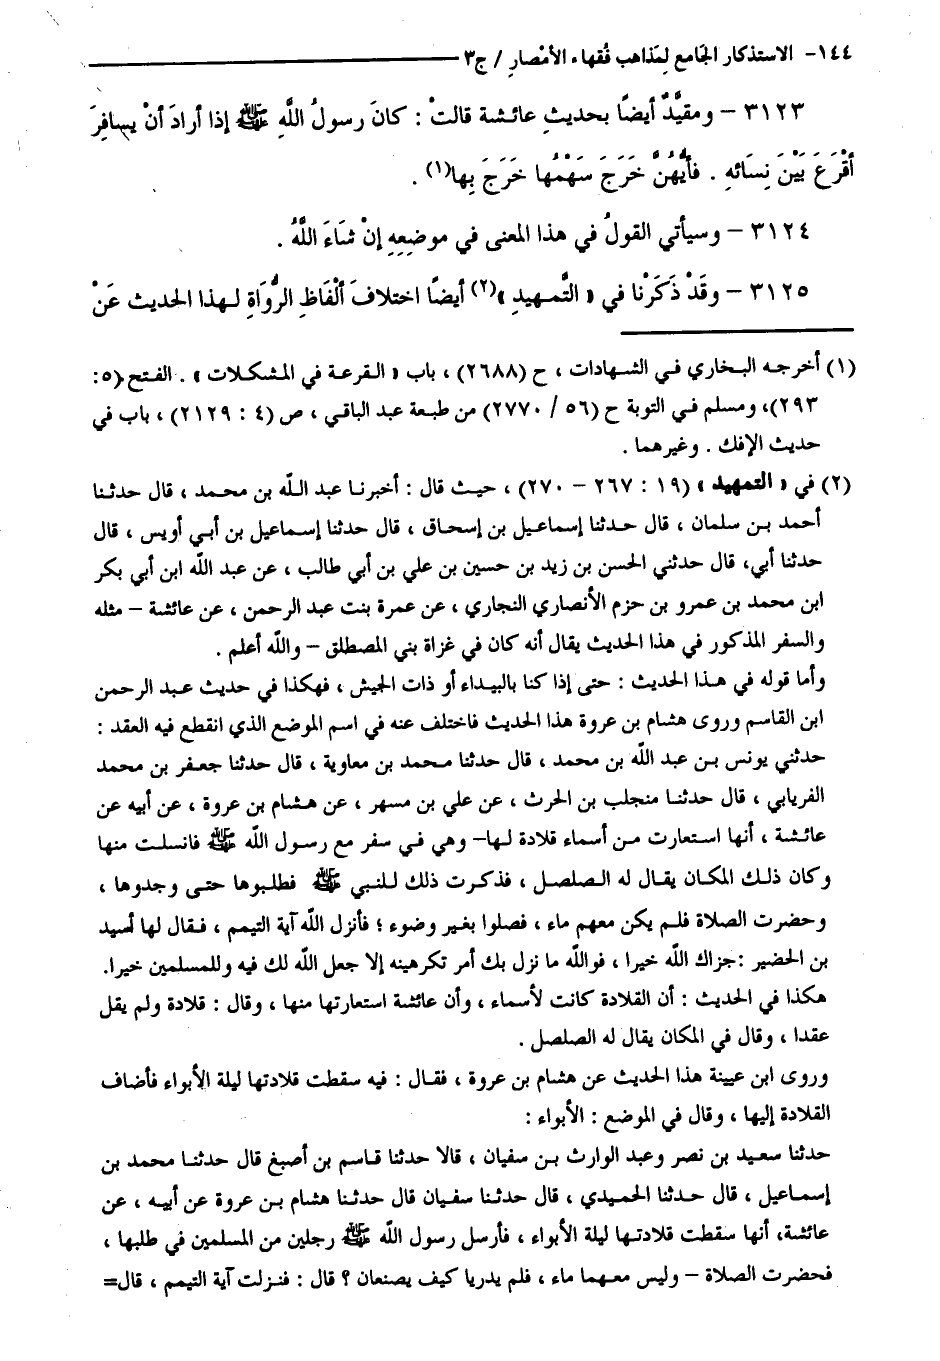 ١٤٤- الاستذكار الجَامع لِمَذاهب فُقهاء الأمْصارِ / ج٣
٣١٢٣ – ومقيَّدٌ أيضًا بحديثِ عائشة قالتْ : كانَ رسولُ اللَّهِ ﷺ إذا أرادَ أنْ يسافِرَ
أقْرَعَ بَيْنَ نِسَائهِ . فأيُّهُنَّ خَرَجَ سَهْمُها خَرَجَ بِها(١) .
٣١٢٤ – وسيأتي القولُ في هذا المعنى في موضِعِهِ إنْ شَاءَ اللَّهُ .
٣١٢٥ – وقَدْ ذَكَرْنا في « التَّمهيدِ »(٢) أيضًا اختلافَ ألْفَاظِ الرُّوَاةِ لـهذا الحديث عَنْ
(١) أخرجه البخاري في الشهادات ، ح (٢٦٨٨) ، باب « القرعة في المشكلات » . الفتح (٥:
٢٩٣)، ومسلم في التوبة ح (٥٦ / ٢٧٧٠) من طبعة عبد الباقي ، ص (٤ : ٢١٢٩) ، باب في
حديث الإفك . وغيرهما .
(٢) في « التمهيد » (١٩ : ٢٦٧ – ٢٧٠) ، حيث قال : أخبرنا عبد الله بن محمد ، قال حدثنا
أحمد بن سلمان ، قال حدثنا إسماعيل بن إسحاق ، قال حدثنا إسماعيل بن أبي أويس ، قال
حدثنا أبي، قال حدثني الحسن بن زيد بن حسين بن علي بن أبي طالب ، عن عبد الله ابن أبي بكر
ابن محمد بن عمرو بن حزم الأنصاري النجاري ، عن عمرة بنت عبد الرحمن ، عن عائشة – مثله
والسفر المذكور في هذا الحديث يقال أنه كان في غزاة بني المصطلق – والله أعلم .
وأما قوله في هذا الحديث : حتى إذا كنا بالبيداء أو ذات الجيش ، فهكذا في حديث عبد الرحمن
ابن القاسم وروى هشام بن عروة هذا الحديث فاختلف عنه في اسم الموضع الذي انقطع فيه العقد :
حدثني يونس بن عبد الله بن محمد ، قال حدثنا محمد بن معاوية ، قال حدثنا جعفر بن محمد
الفريابي ، قال حدثنا منجلب بن الحرث ، عن علي بن مسهر ، عن هشام بن عروة ، عن أبيه عن
عائشة ، أنها استعارت من أسماء قلادة لها– وهي في سفر مع رسول الله ﷺ فانسلت منها
وكان ذلك المكان يقال له الصلصل ، فذكرت ذلك للنبي ﷺ فطلبوها حتى وجدوها ،
وحضرت الصلاة فلم يكن معهم ماء ، فصلوا بغير وضوء ؛ فأنزل الله آية التيمم ، فقال لها أسيد
بن الحضير :جزاك الله خيرا ، فوالله ما نزل بك أمر تكرهينه إلا جعل الله لك فيه وللمسلمين خيرا.
هكذا في الحديث : أن القلادة كانت لأسماء ، وأن عائشة استعارتها منها ، وقال : قلادة ولم يقل
عقدا ، وقال في المكان يقال له الصلصل .
وروى ابن عيينة هذا الحديث عن هشام بن عروة ، فقال : فيه سقطت قلادتها ليلة الأبواء فأضاف
القلادة إليها ، وقال في الموضع : الأبواء :
حدثنا سعيد بن نصر وعبد الوارث بن سفيان ، قالا حدثنا قاسم بن أصبغ قال حدثنا محمد بن
إسماعيل ، قال حدثنا الحميدي ، قال حدثنا سفيان قال حدثنا هشام بن عروة عن أبيه ، عن
عائشة، أنها سقطت قلادتها ليلة الأبواء ، فأرسل رسول الله ﷺ رجلين من المسلمين في طلبها ،
فحضرت الصلاة – وليس معهما ماء ، فلم يدريا كيف يصنعان ؟ قال : فنزلت آية التيمم ، قال=